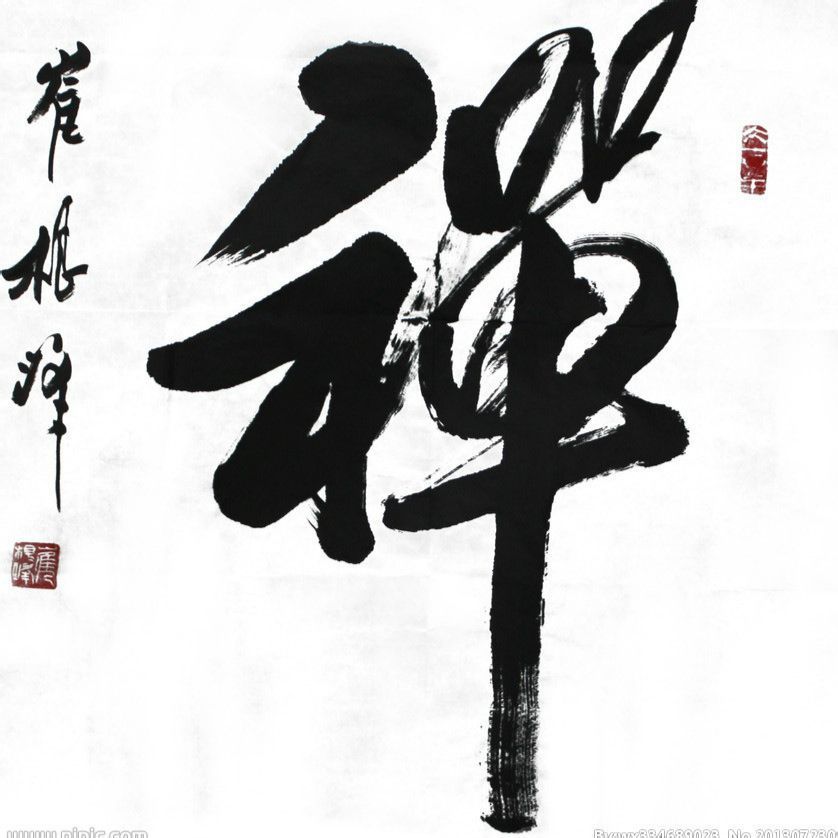 禪
崔根峰
崔根峰
www.nipic.com
By:wx334689023 No.20130723